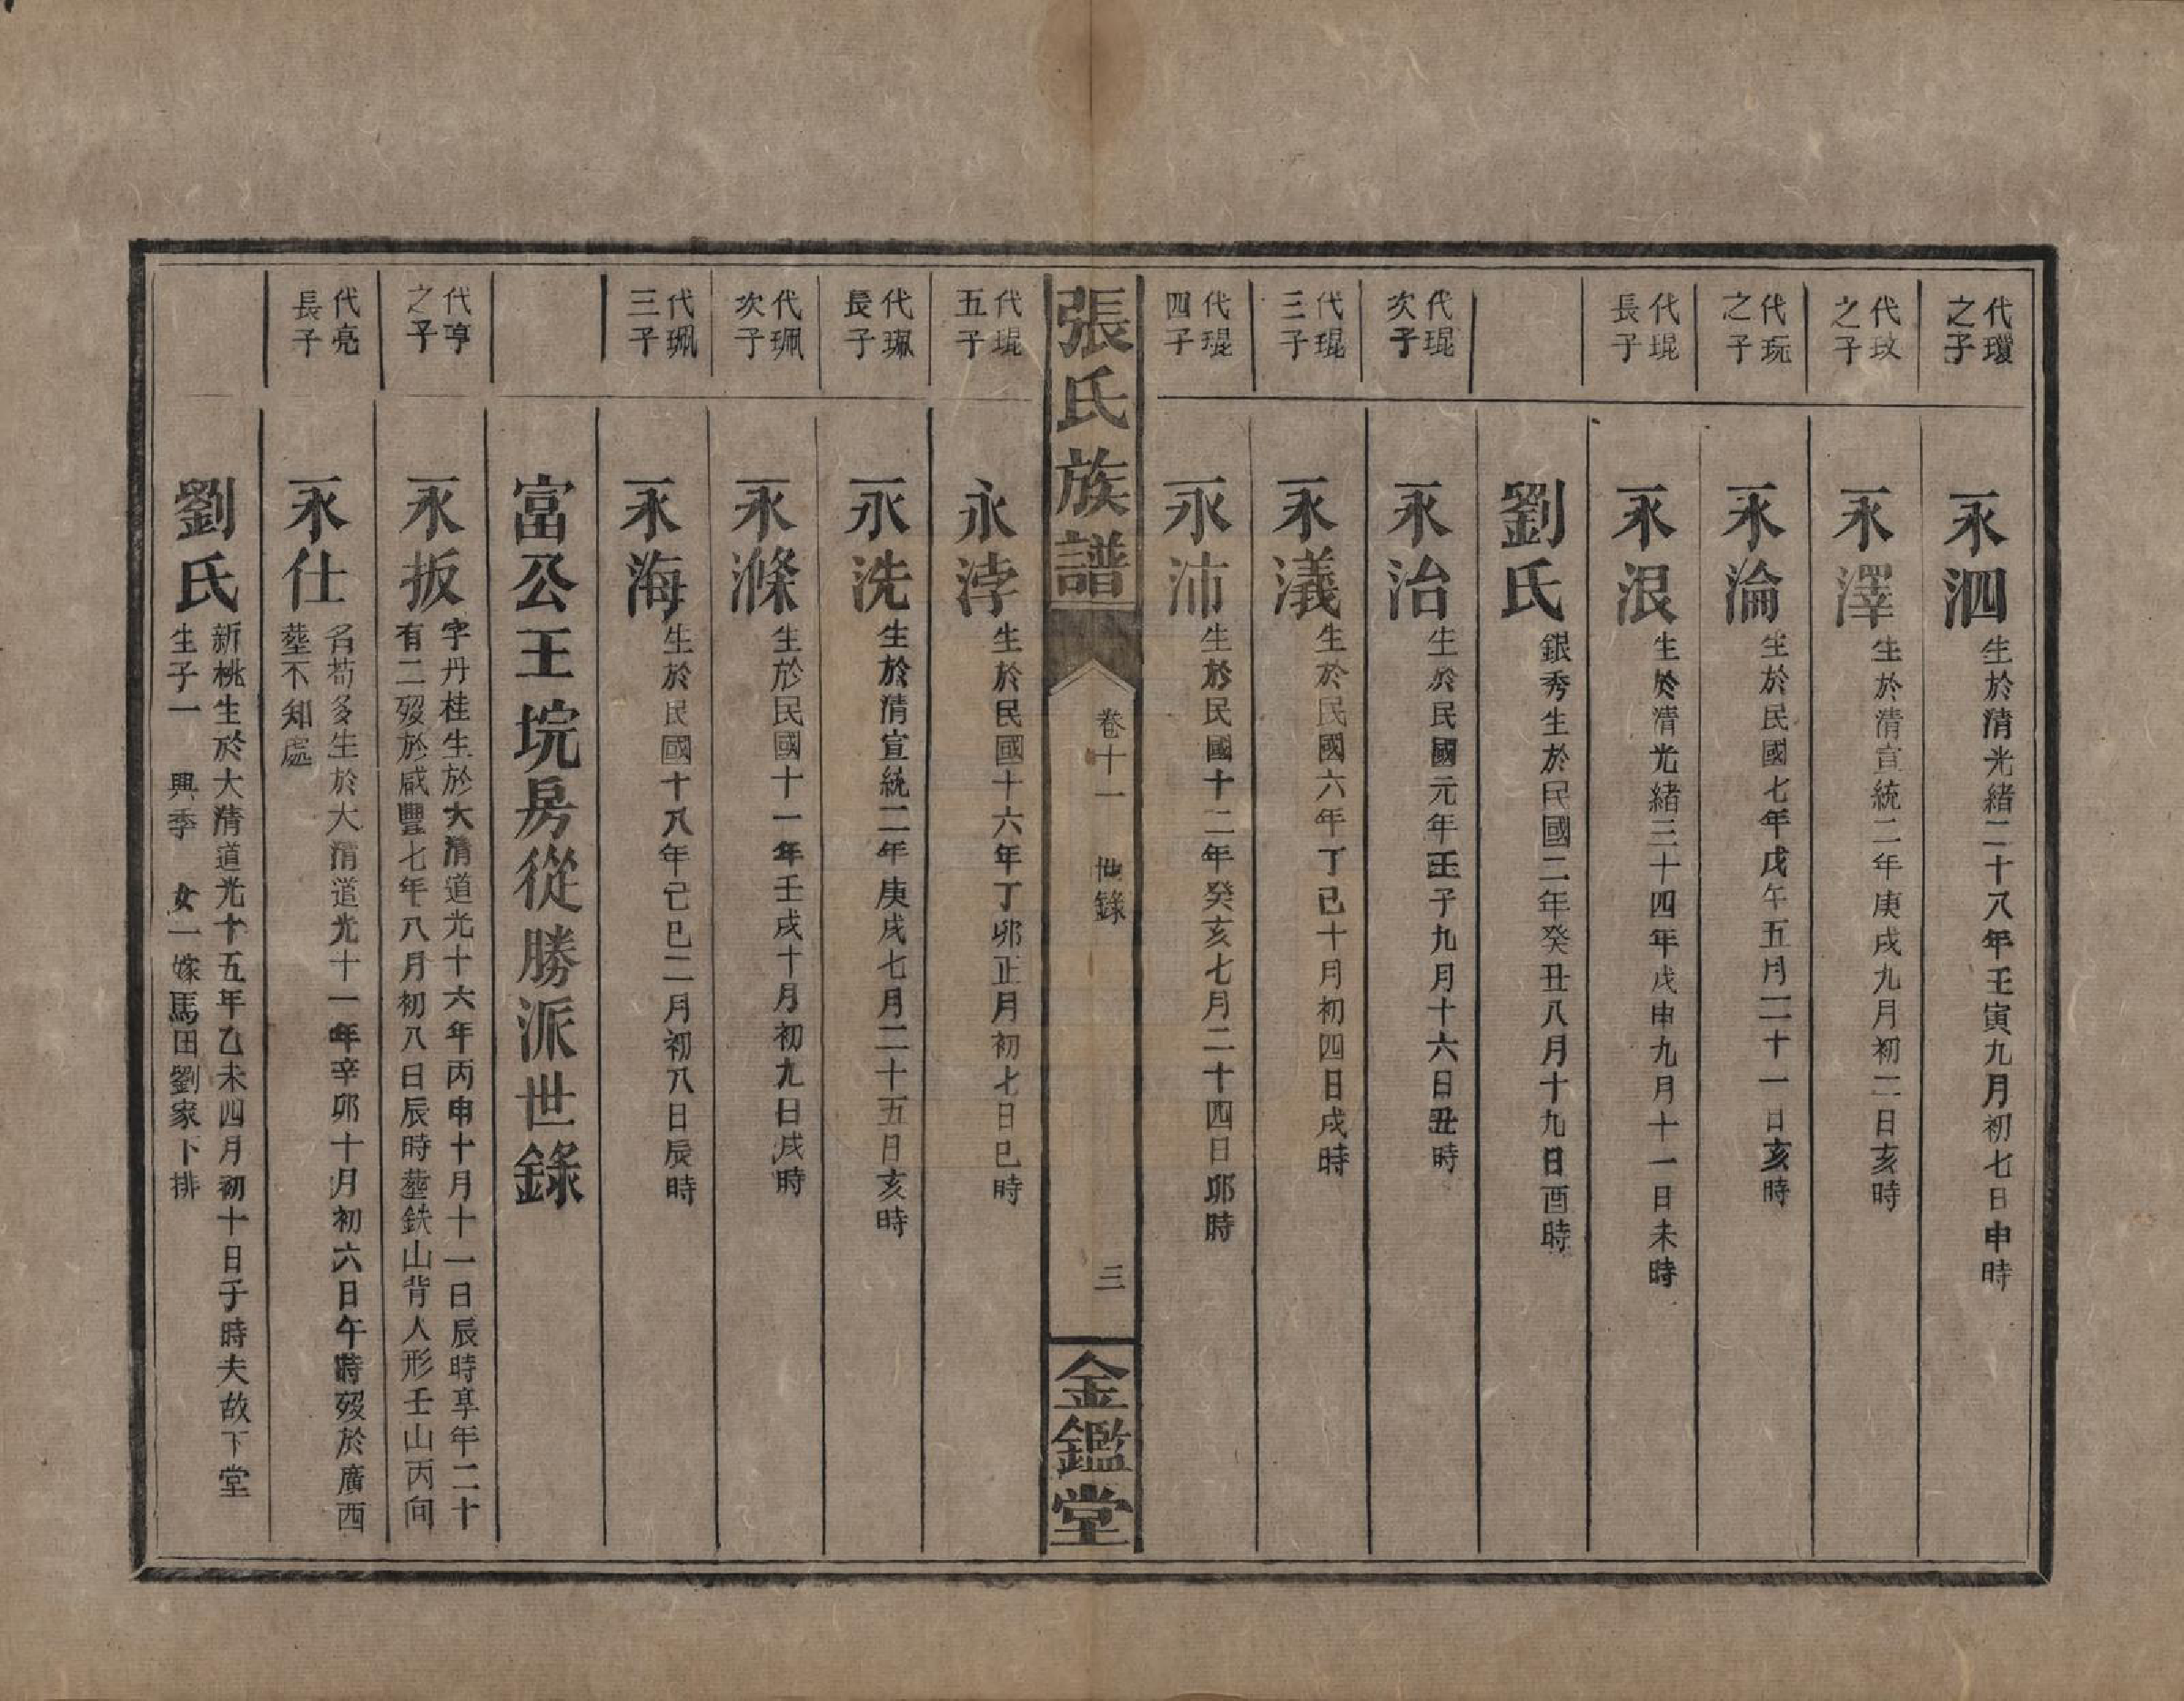 代瓊之子
永泗 生於清光緒二十八年壬寅九月初七日申時
代玟之子
永澤 生於清宣統二年庚戌九月初二日亥時
代玩之子
永淪 生於民國七年戊午五月二十一日亥時
代琨長子
永泿 生於清光緒三十四年戊申九月十一日未時
劉氏 銀秀生於民國二年癸丑八月十九日酉時
代琨次子
永治 生於民國元年壬子九月十六日丑時
代琨三子
永㵝 生於民國六年丁巳十月初四日戌時
代琨四子
永沛 生於民國十二年癸亥七月二十四日卯時
張氏族譜 卷十一 世錄 三 金鑑堂
代琨五子
永浡 生於民國十六年丁卯正月初七日巳時
代珮長子
永洗 生於清宣統二年庚戌七月二十五日亥時
代珮次子
永滌 生於民國十一年壬戌十月初九日戌時
代珮三子
永海 生於民國十八年己巳二月初八日辰時
富公王垸房從勝派世錄
代亨之子
永扳 字丹桂生於大清道光十六年丙申十月十一日辰時享年二十
有二歿於咸豐七年八月初八日辰時塟鉄山背人形壬山丙向
代亮長子
永仕 名苟多生於大清道光十一年辛卯十月初六日午時歿於廣西
塟不知處
劉氏 新桃生於大清道光十五年乙未四月初十日子時夫故下堂
生子一 興季 女一嫁馬田劉家下排